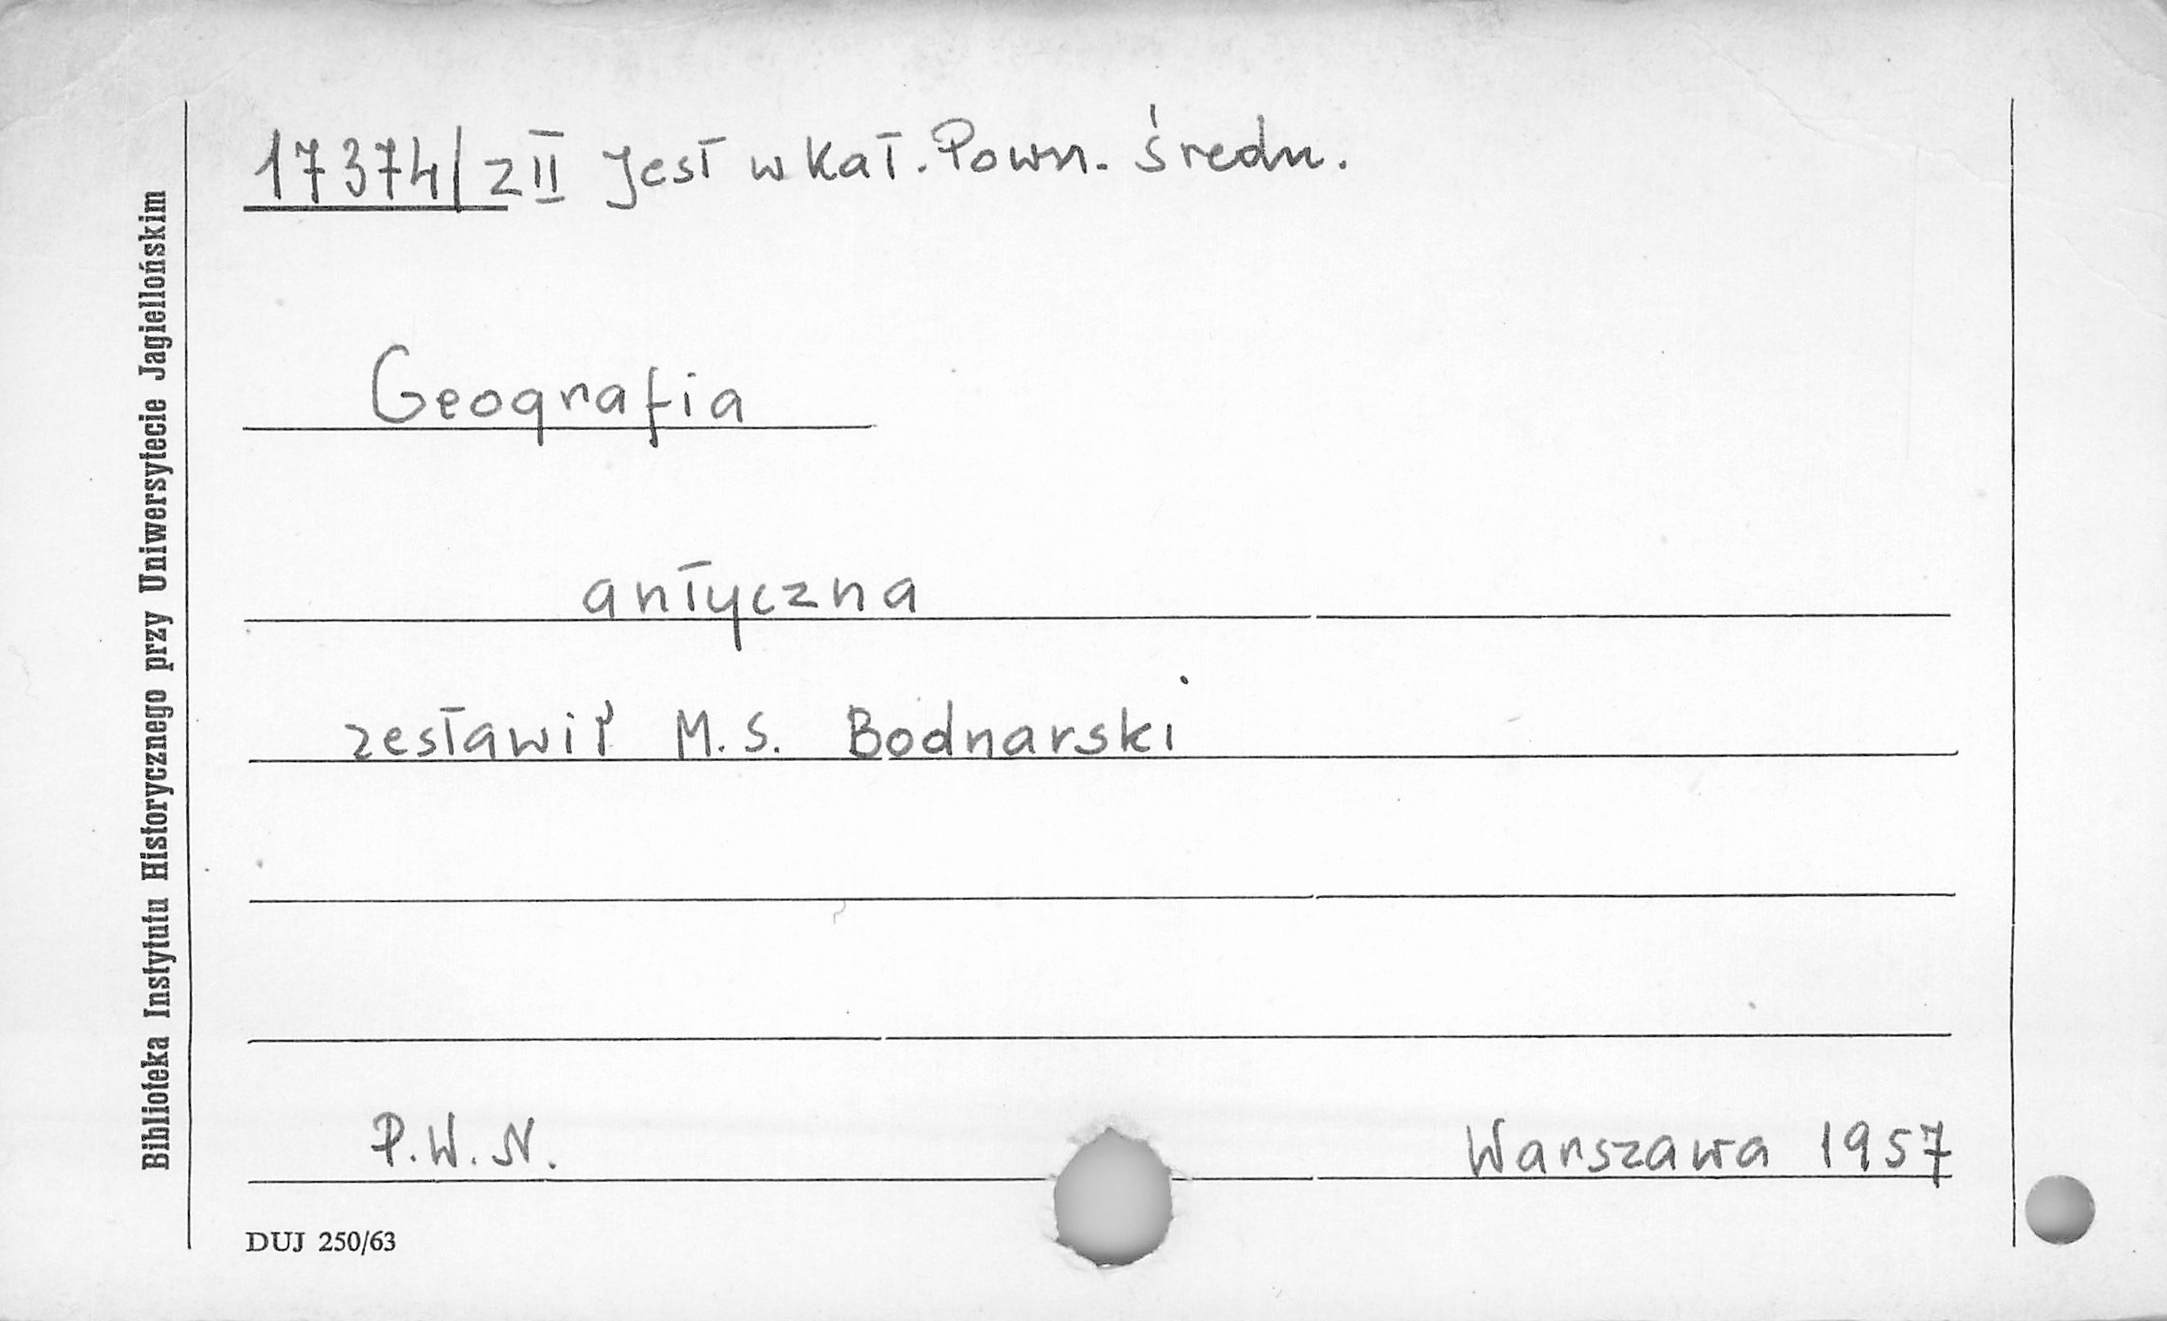 17374/zII Jest w Kat. Pown. średn.
Geografia
antyczna
zestawił M. S. Bodnarski
P.W.N. Warszawa 1957
DUJ 250/63
Biblioteka Instytutu Historycznego przy Uniwersytecie Jagiellońskim